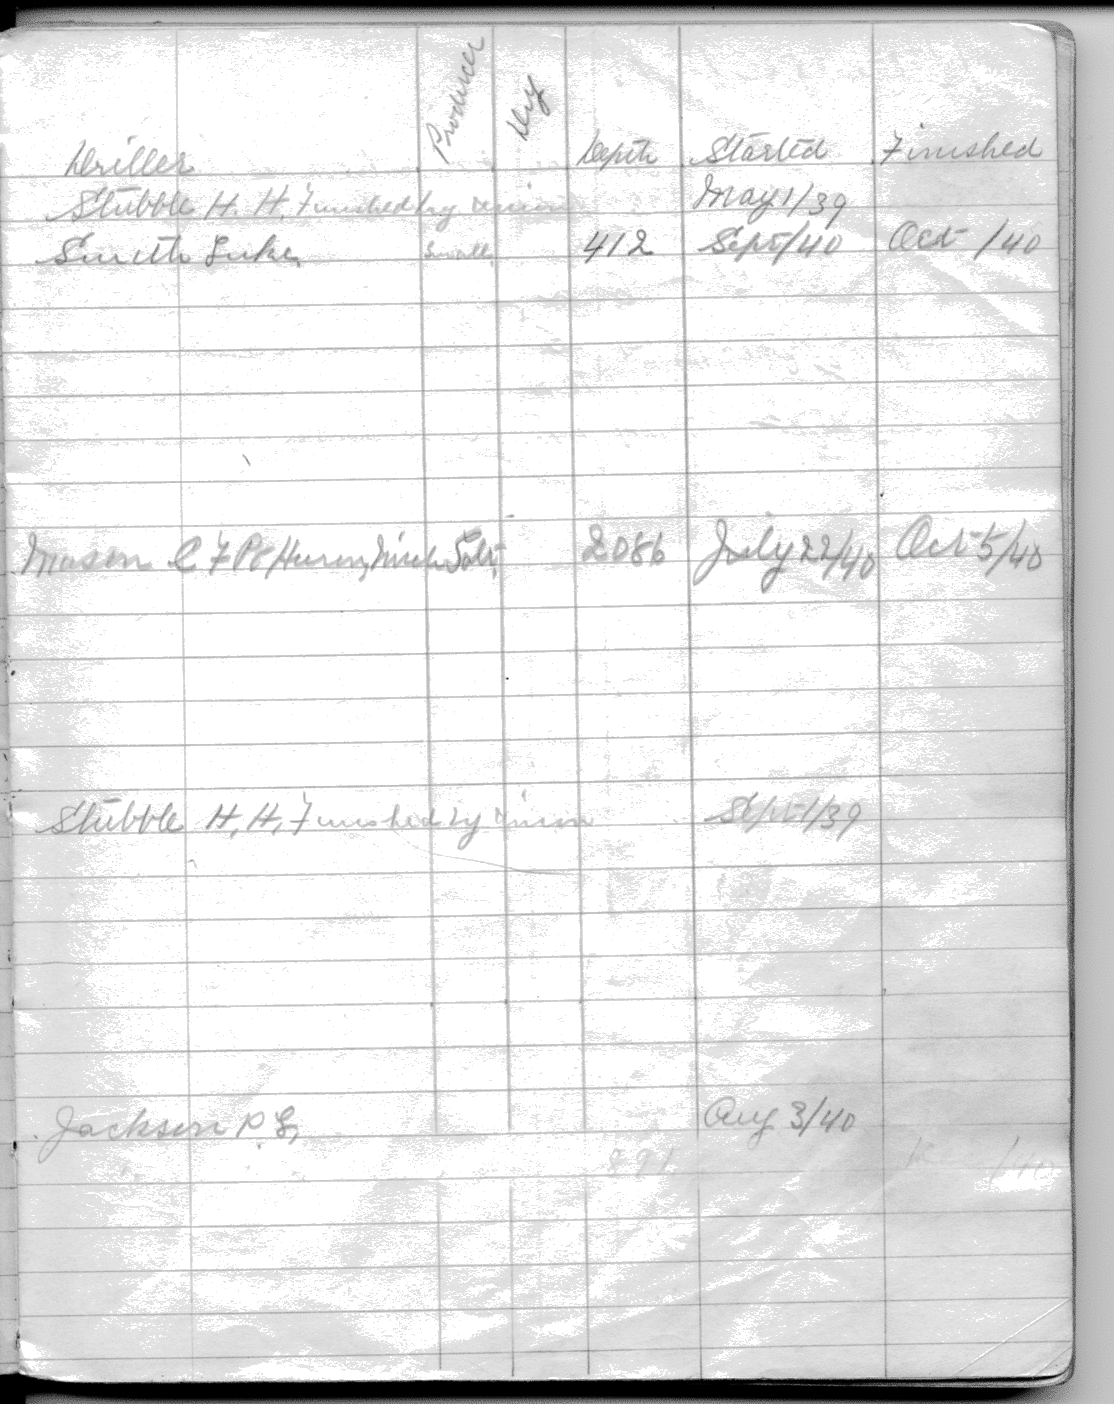 Driller Producer Dry Depth Started Finished
Stubble H. H. Finished by union May 1/39
Smith Luke Small 412 Sept/40 Oct /40
Mason C F Pt Huron, Mich Salt 2086 July 22/40 Oct 5/40
Stubble H. H. Finished by union Sept 1/39
Jackson P. L. Aug 3/40
891 /40